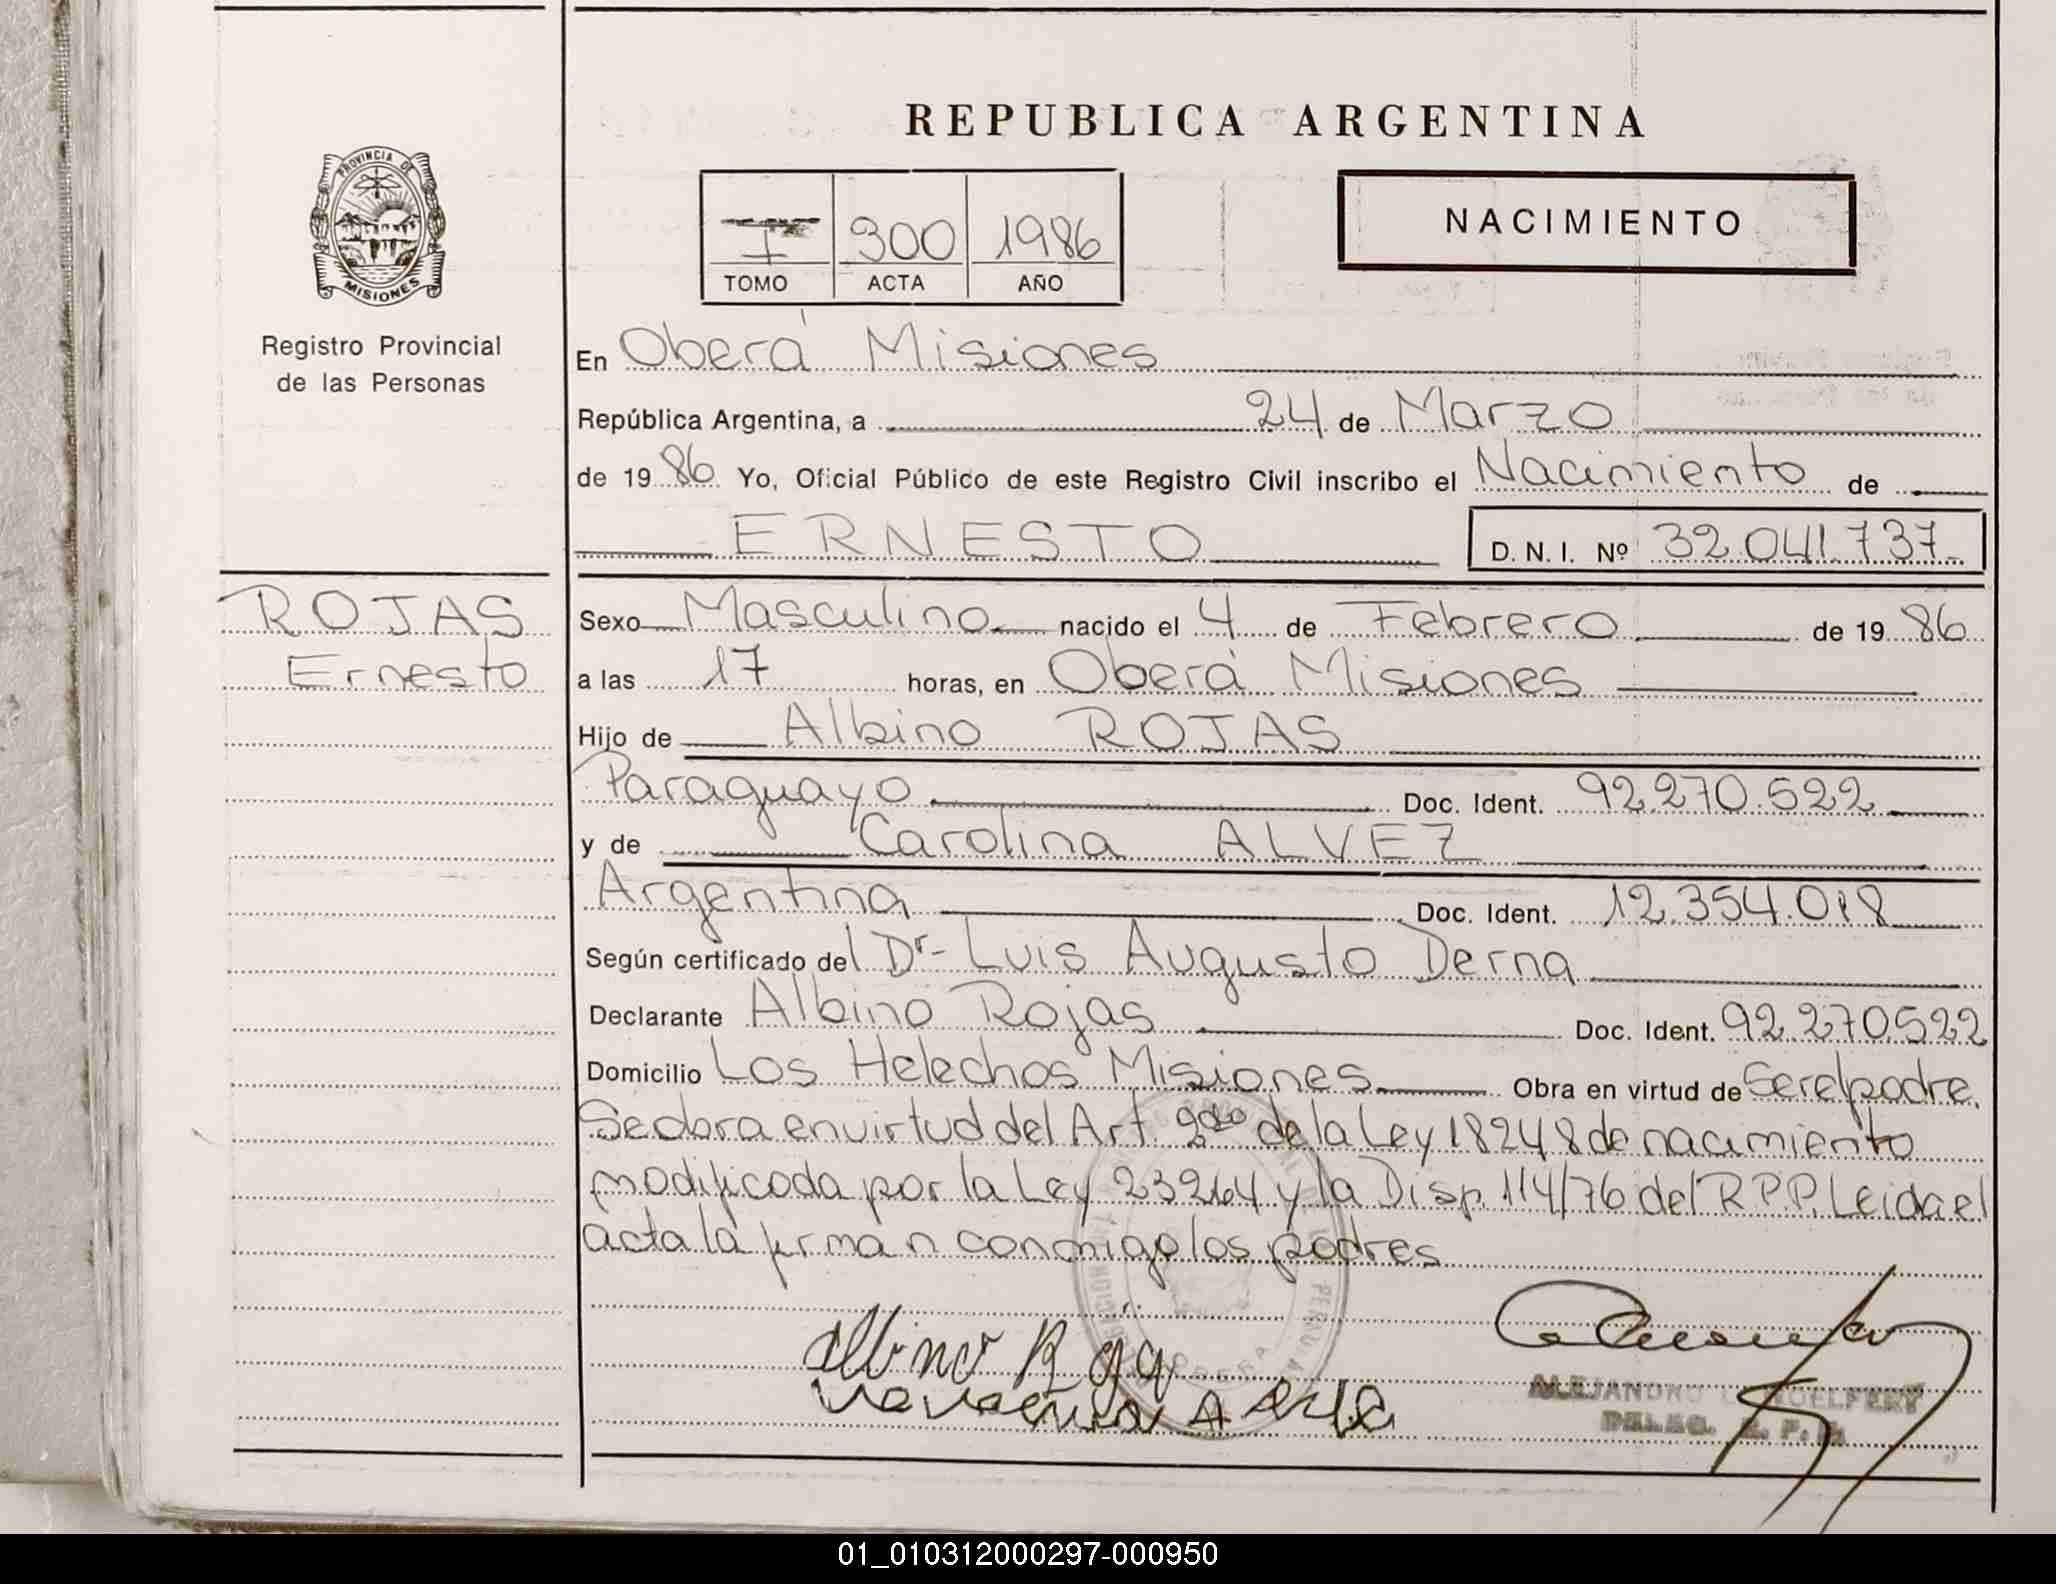 REPUBLICA ARGENTINA
PROVINCIA DE
MISIONES
Registro Provincial
de las Personas
I 300 1986
TOMO ACTA AÑO
NACIMIENTO
En Oberá Misiones
República Argentina, a 24 de Marzo
de 19 86 Yo, Oficial Público de este Registro Civil inscribo el Nacimiento de
ERNESTO D. N. I. Nº 32.041.737
ROJAS
Ernesto
Sexo Masculino nacido el 4 de Febrero de 19 86
a las 17 horas, en Oberá Misiones
Hijo de Albino ROJAS
Paraguayo Doc. Ident. 92.270.522
y de Carolina ALVEZ
Argentina Doc. Ident. 12.354.018
Según certificado del Dr- Luis Augusto Derna
Declarante Albino Rojas Doc. Ident. 92.270.522
Domicilio Los Helechos Misiones Obra en virtud de Ser el padre.
Se obra en virtud del Art. 2do de la Ley 18248 de nacimiento
modificada por la Ley 23264 y la Disp. 114/76 del R.P.P. Leida el
acta la firman conmigo los padres
Albino Roja
ALEJANDRO
DELEG. R. P. P.
01_010312000297-000950